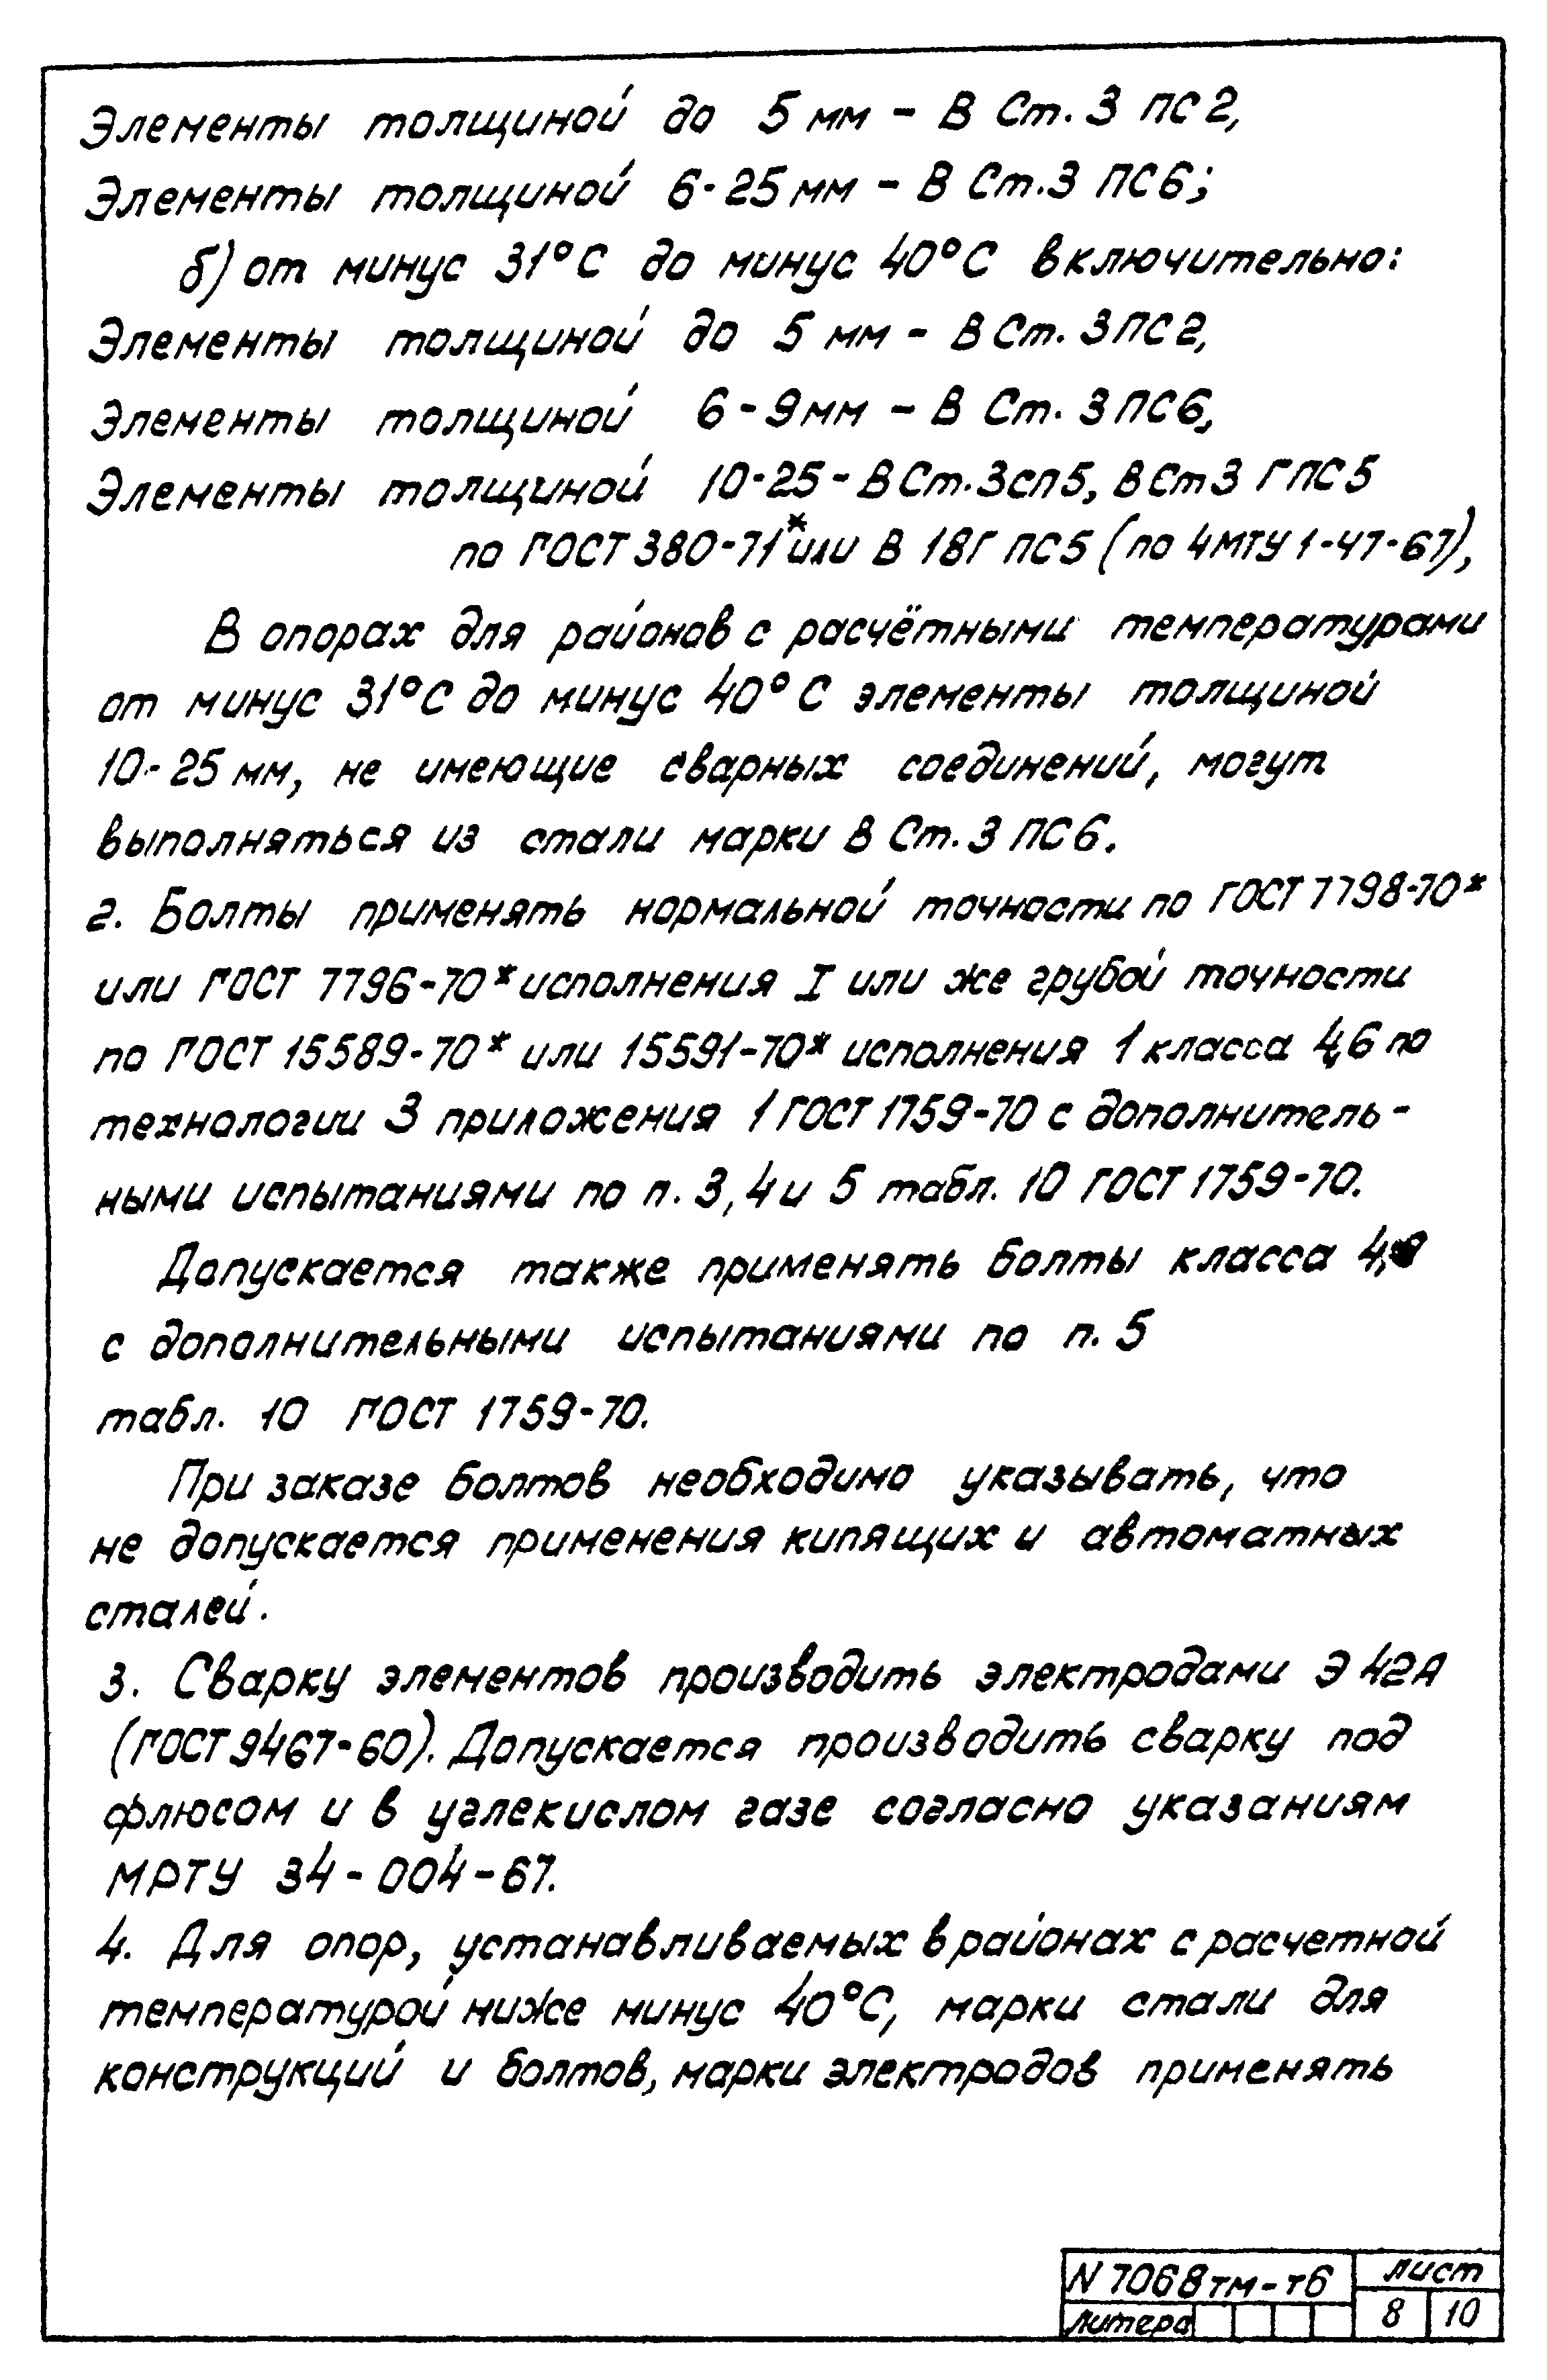 Элементы толщиной до 5 мм - В Ст. 3 ПС 2,
Элементы толщиной 6-25 мм - В Ст.3 ПС6;
б) от минус 31°С до минус 40°С включительно:
Элементы толщиной до 5 мм - В Ст. 3ПС2,
Элементы толщиной 6-9мм - В Ст. 3ПС6,
Элементы толщиной 10-25- ВСт.3сп5, ВСт3 ГПС5
по ГОСТ 380-71* или В 18Г ПС5 (по 4МТУ 1-47-67),
В опорах для районов с расчётными температурами
от минус 31°С до минус 40°С элементы толщиной
10-25 мм, не имеющие сварных соединений, могут
выполняться из стали марки В Ст. 3 ПС6.
2. Болты применять нормальной точности по ГОСТ 7798-70*
или ГОСТ 7796-70* исполнения I или же грубой точности
по ГОСТ 15589-70* или 15591-70* исполнения 1 класса 4,6 по
технологии 3 приложения 1 ГОСТ 1759-70 с дополнитель-
ными испытаниями по п. 3,4 и 5 табл. 10 ГОСТ 1759-70.
Допускается также применять болты класса
с дополнительными испытаниями по п. 5
табл. 10 ГОСТ 1759-70.
При заказе болтов необходимо указывать, что
не допускается применения кипящих и автоматных
сталей.
3. Сварку элементов производить электродами Э 42А
(ГОСТ 9467-60). Допускается производить сварку под
флюсом и в углекислом газе согласно указаниям
МРТУ 34-004-67.
4. Для опор, устанавливаемых в районах с расчетной
температурой ниже минус 40°С, марки стали для
конструкций и болтов, марки электродов применять
N 7068тм-т6
лист
литера
8 10